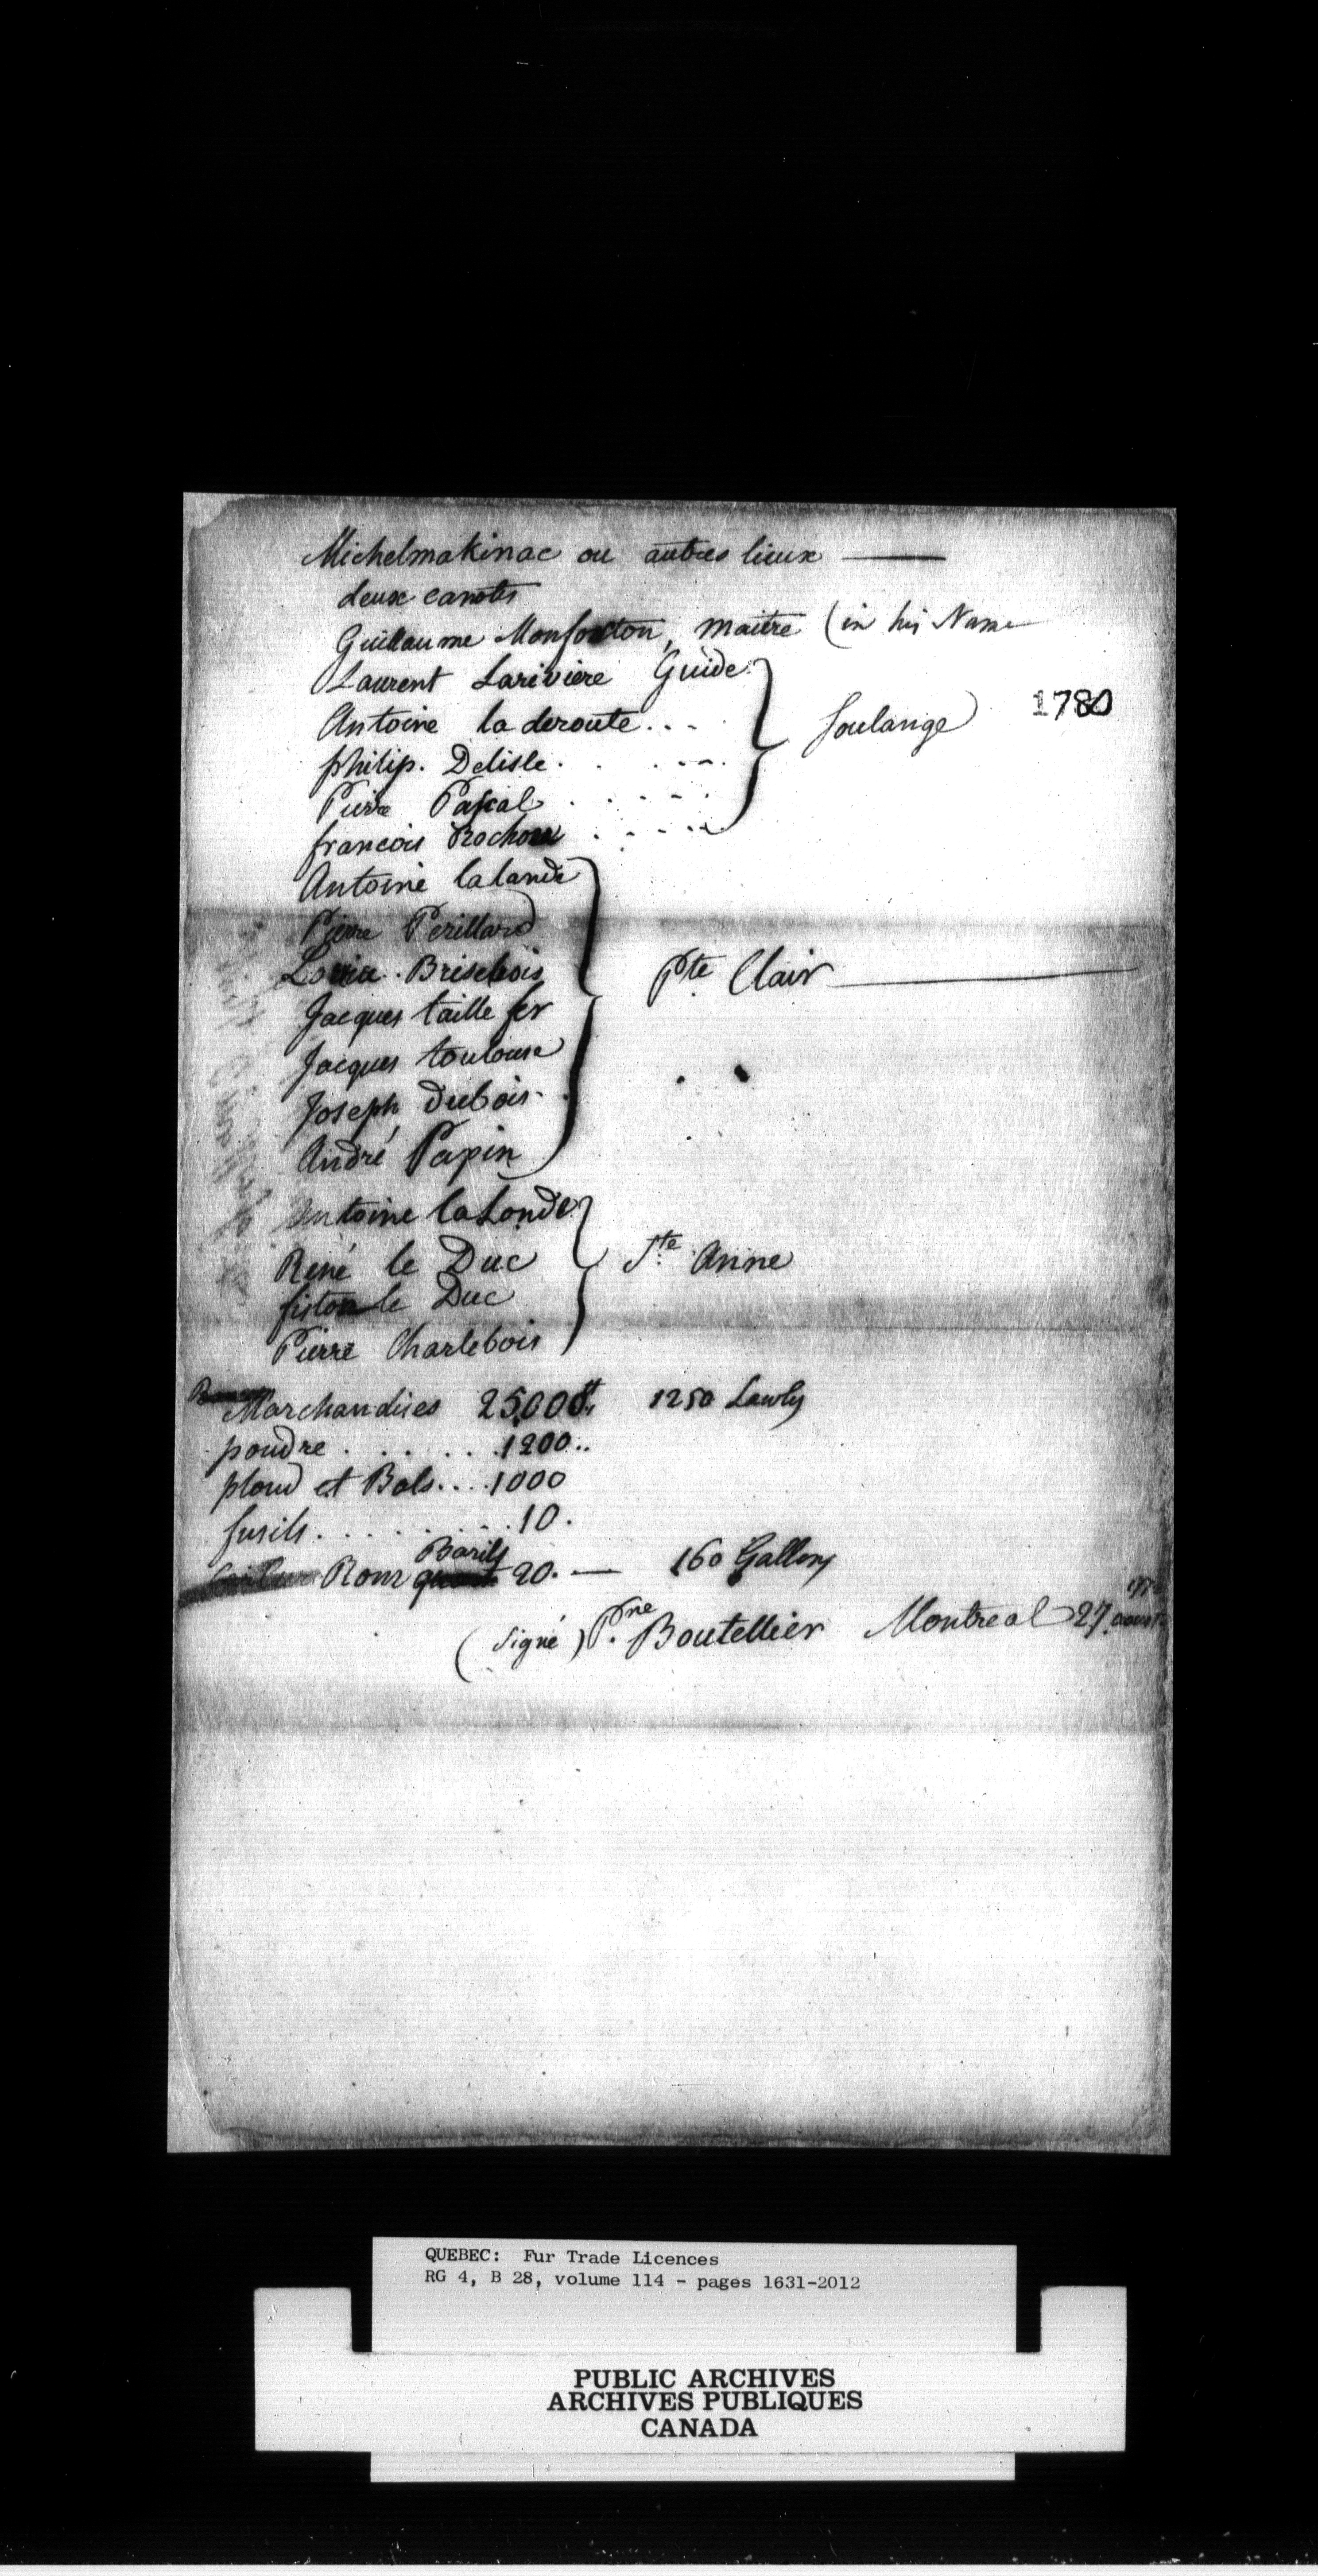 Michelmakinac ou autres lieux
deux canots
Guillaume Monforton, maitre (in his Name
Laurent Lariviere Guide
Antoine la deroute
philip. Delisle
Soulange
1780
Pierre Pascal
francois Rochon
Antoine lalande
Pierre Perillard
Brisebois
Pte Clair
Jacques taille fer
Jacques toulouse
Joseph dubois
André Papin
Antoine laLonde
René le Duc
Ste Anne
le Duc
Pierre Charlebois
Marchandises 25000tt 1250 Lawfy
poudre . . . . . . 1200..
plomd et Bals.... 1000
fusils. . . . . . . . 10.
Rom Barils 20. — 160 Gallons
(signé) Pre Boutellier Montreal 27 aoust
QUEBEC: Fur Trade Licences
RG 4, B 28, volume 114 - pages 1631-2012
PUBLIC ARCHIVES
ARCHIVES PUBLIQUES
CANADA